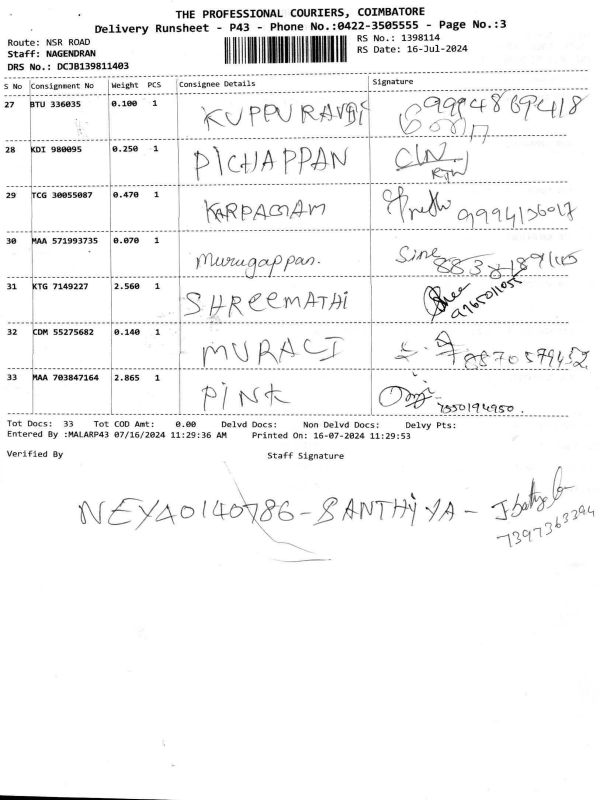 THE PROFESSIONAL COURIERS, COIMBATORE
Delivery Runsheet - P43 - Phone No.:0422-3505555 - Page No.:3
Route: NSR ROAD
RS No.: 1398114
Staff: NAGENDRAN
RS Date: 16-Jul-2024
DRS No.: DCJB139811403
S No Consignment No Weight PCS Consignee Details Signature
27 BTU 336035 0.100 1 KUPPURAVBI 9994869418
28 KDI 980095 0.250 1 PICHAPPAN
29 TCG 30055087 0.470 1 KARPAGAM 9994136017
30 MAA 571993735 0.070 1 Murugappan. Sine
31 KTG 7149227 2.560 1 SHREEMATHI
32 CDM 55275682 0.140 1 MURALI 8870579452
33 MAA 703847164 2.865 1 PINK 7550194950.
Tot Docs: 33 Tot COD Amt: 0.00 Delvd Docs: Non Delvd Docs: Delvy Pts:
Entered By :MALARP43 07/16/2024 11:29:36 AM Printed On: 16-07-2024 11:29:53
Verified By Staff Signature
NEY40140786 - SANTHIYA -
7397363394